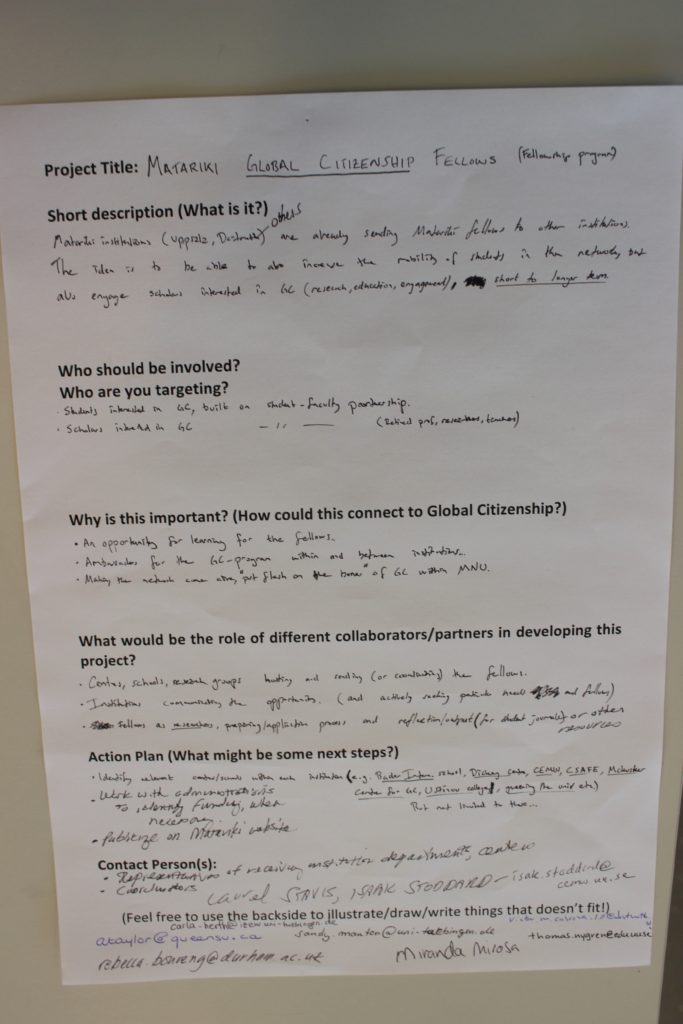 Project Title: MATARIKI GLOBAL CITIZENSHIP FELLOWS (Fellowship program)
Short description (What is it?) others
Matariki institutions (Uppsala, Dartmouth) are already sending Matariki fellows to other institutions.
The idea is to be able to also increase the mobility of students in the network, but
also engage scholars interested in GC (research, education, engagement), short to longer term.
Who should be involved?
Who are you targeting?
· Students interested in GC, built on student-faculty partnership.
· Scholars interested in GC — 11 — (Retired profs, researchers, teachers)
Why is this important? (How could this connect to Global Citizenship?)
• An opportunity for learning for the fellows.
• Ambassadors for the GC-program within and between institutions...
• Making the network come alive, "put flesh on the bones" of GC within MNU.
What would be the role of different collaborators/partners in developing this
project?
· Centres, schools, research groups hosting and sending (or coordinating) the fellows.
· Institutions communicating the opportunity. (and actively seeking particular needs and fellows)
· Fellows as researchers, preparing/application process and reflection/output (for student journals) or other
resources
Action Plan (What might be some next steps?)
• Identify relevant centres/schools within each institution (e.g. Bader Intern. school, Dickey Center, CEMUS, CSAFE, McLusker
Center for GC, Ustinov college, etc)
But not limited to these...
• Work with administrations
to identify funding, when
necessary.
• Publicize on Matariki website
Contact Person(s):
• Representatives of receiving institution departments, centers
• Coordinators
Laurel STAVIS, ISAK STODDARD - isak.stoddard@
cemus.uu.se
(Feel free to use the backside to illustrate/draw/write things that doesn't fit!)
ataylor@queensu.ca
thomas.nygren@edu.uu.se
Miranda Mirosa